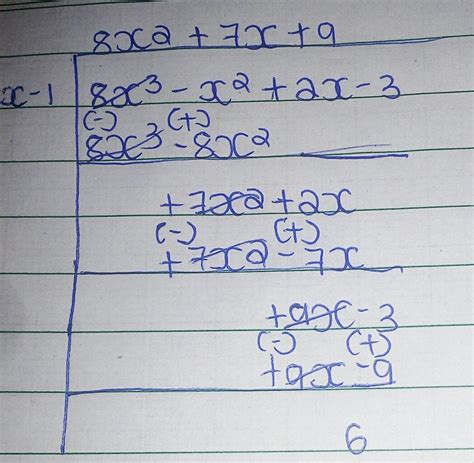 8x2 + 7x + 9
x-1 8x³ - x² + 2x - 3
(-) (+)
8x³ - 8x2
+7x2 + 2x
(-) (+)
+7x2 - 7x
+9x - 3
(-) (+)
+9x - 9
6